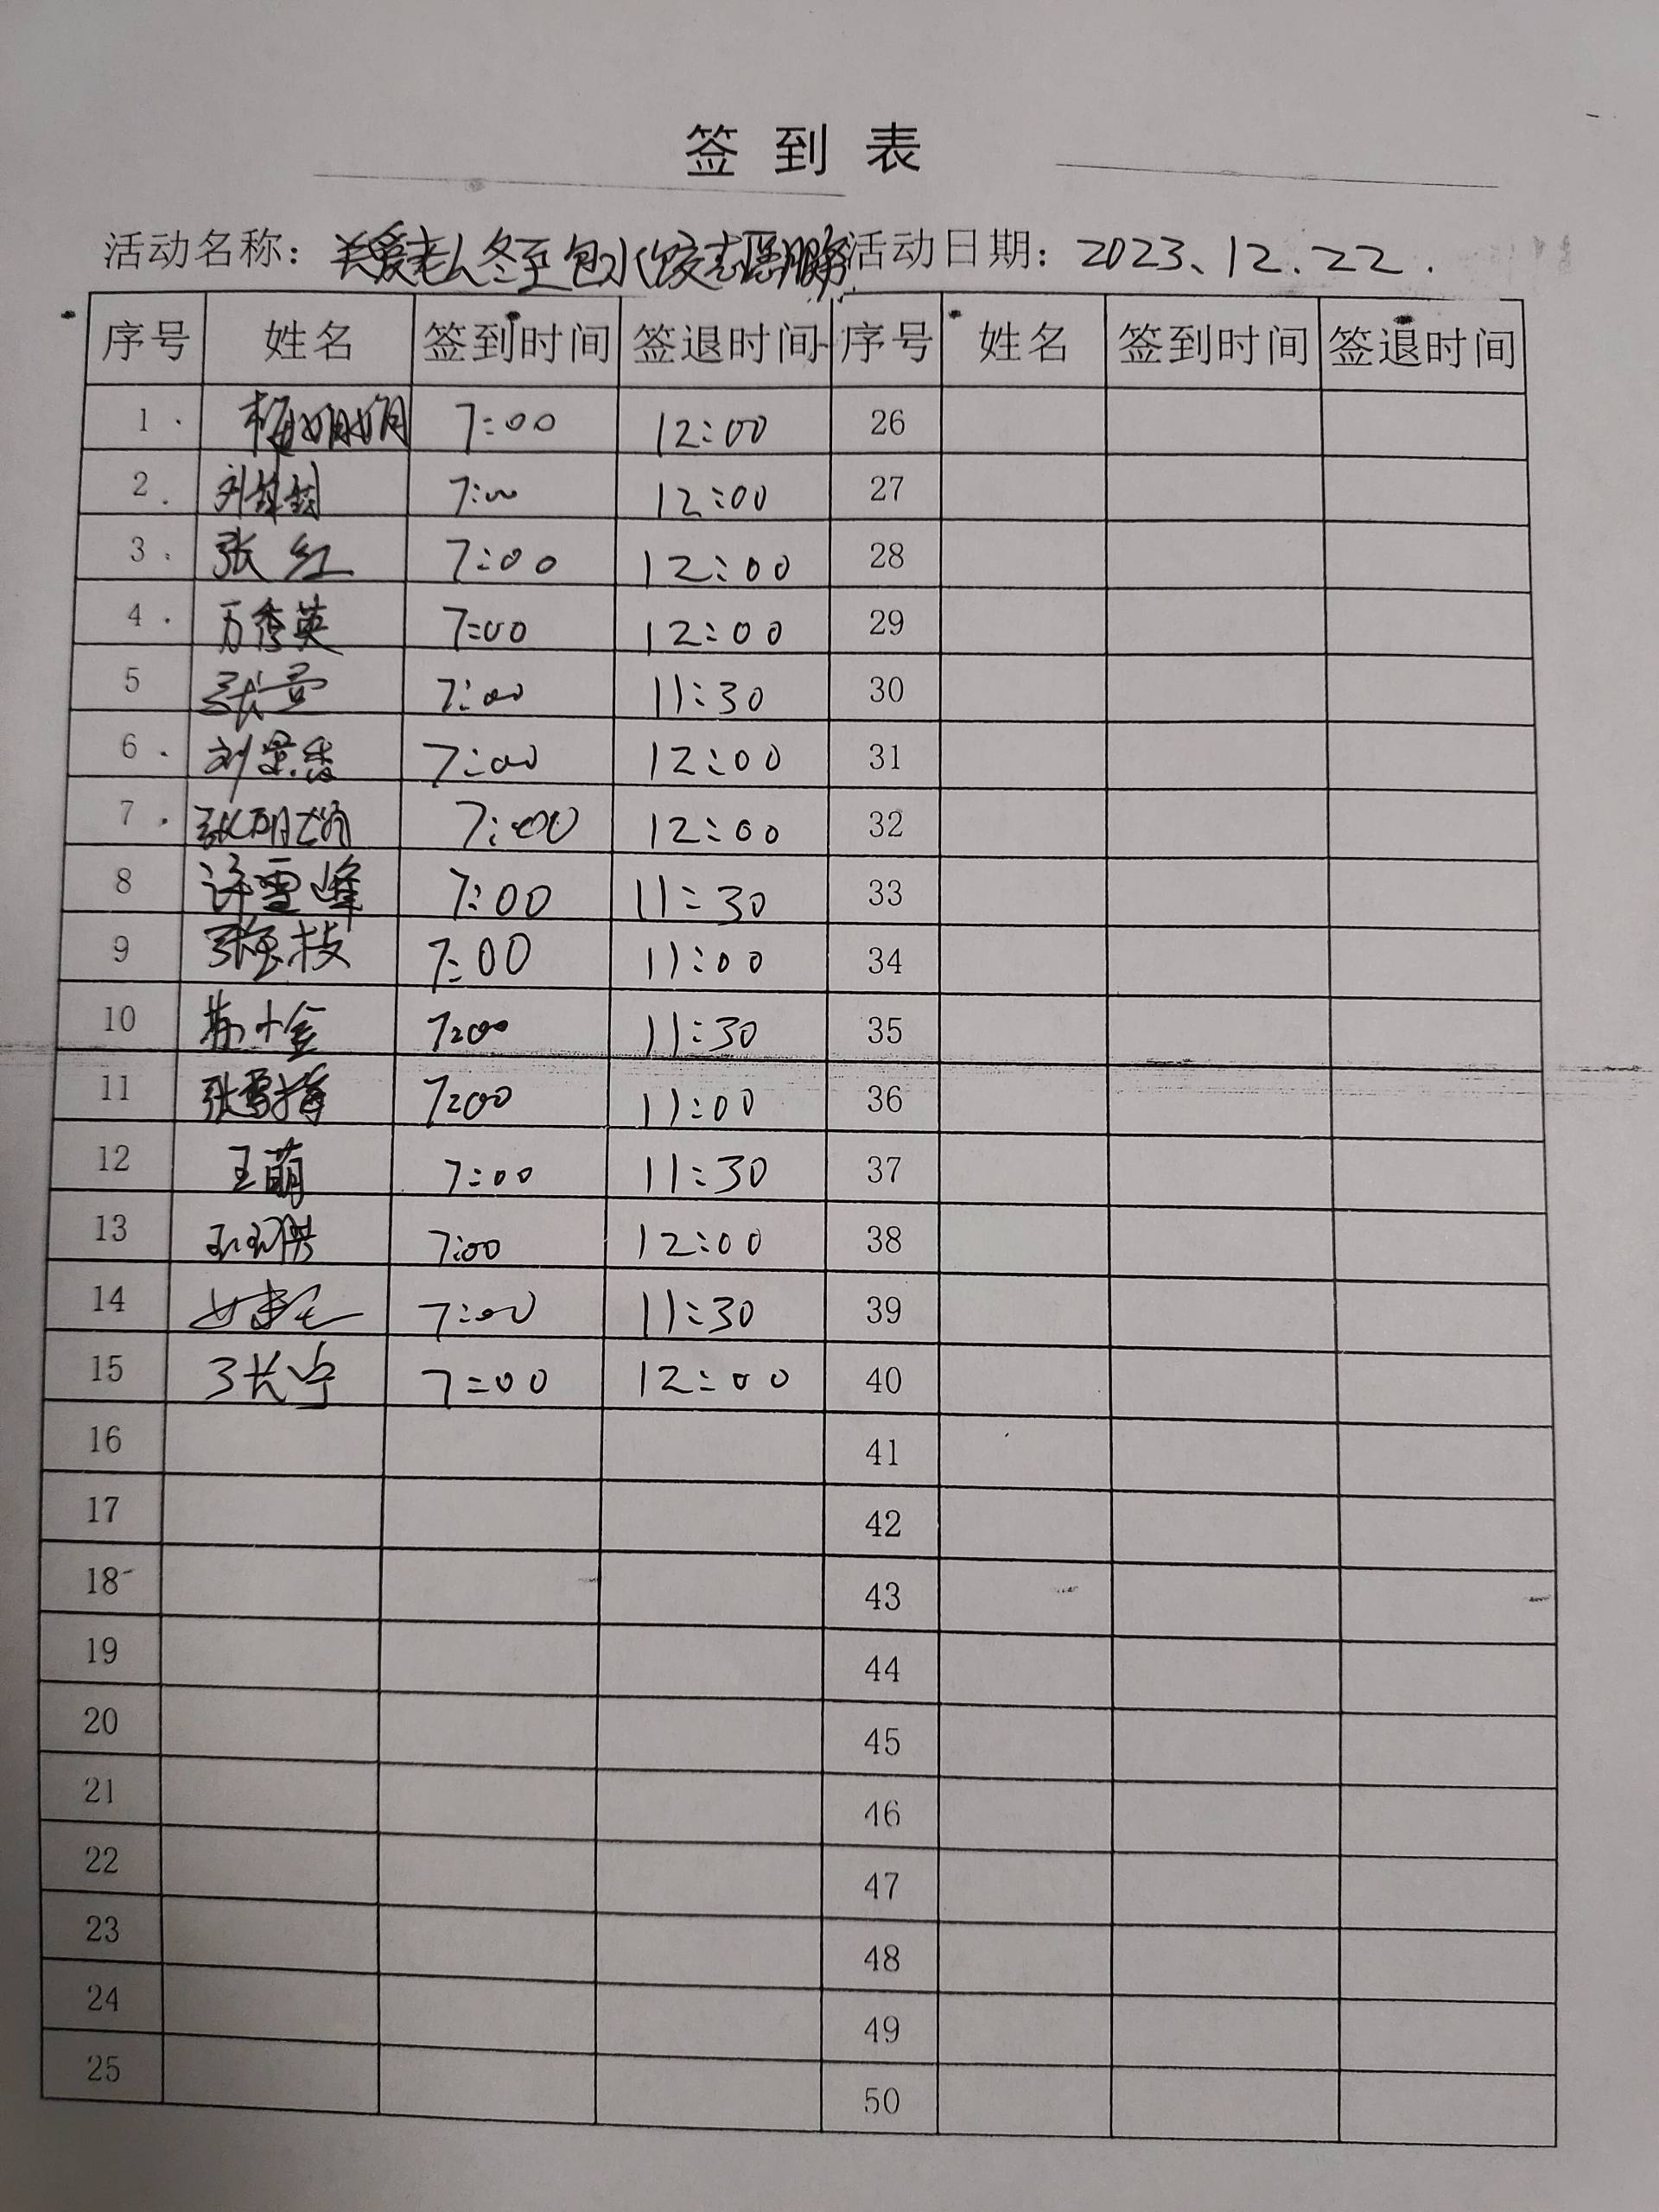 签到表
活动名称：关爱老人冬至包水饺志愿服务 活动日期：2023、12.22.
序号 姓名 签到时间 签退时间 序号 姓名 签到时间 签退时间
1 7:00 12:00 26
2 7:00 12:00 27
3 张红 7:00 12:00 28
4 万秀英 7:00 12:00 29
5 7:00 11:30 30
6 刘景秀 7:00 12:00 31
7 7:00 12:00 32
8 许雪峰 7:00 11:30 33
9 7:00 11:00 34
10 7:00 11:30 35
11 张雪梅 7:00 11:00 36
12 王萌 7:00 11:30 37
13 7:00 12:00 38
14 7:00 11:30 39
15 7:00 12:00 40
16 41
17 42
18 43
19 44
20 45
21 46
22 47
23 48
24 49
25 50